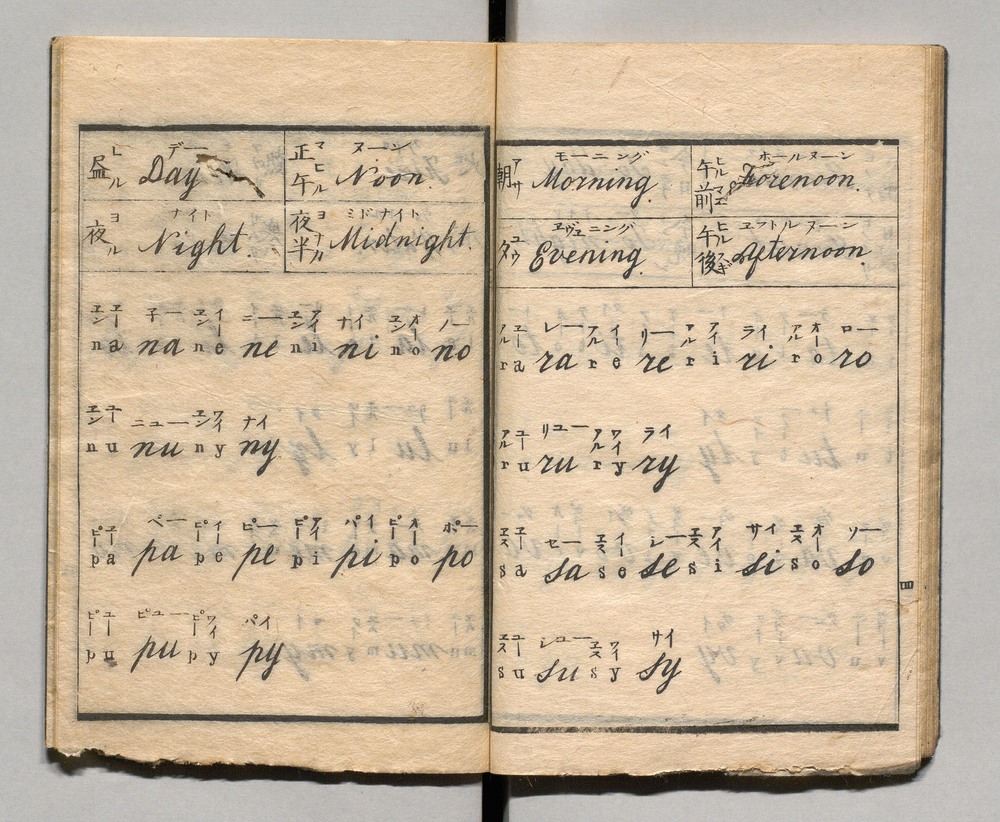 ヒル デー マヒル ヌーン
昼 Day 正午 Noon.
ヨル ナイト ヨナカ ミドナイト
夜 Night. 夜半 Midnight.
ヱンヱー 子ー ヱンイー ニー ヱンアイ ナイ ヱンオー ノー
na na ne ne ni ni no no
ヱンユー ニュー ヱンワイ ナイ
nu nu ny ny
ピーヱー ペー ピーイー ピー ピーアイ パイ ピーオー ポー
pa pa pe pe pi pi po po
ピーユー ピュー ピーワイ パイ
pu pu py py
アサ モーニング ヒルマエ ホールヌーン
朝 Morning. 午前 Forenoon.
ユウ ヱヴェニング ヒルスギ ヱフトルヌーン
夕 Evening. 午後 Afternoon.
アルヱー レー アルイー リー アルアイ ライ アルオー ロー
ra ra re re ri ri ro ro
アルユー リュー アルワイ ライ
ru ru ry ry
ヱスヱー セー ヱスイー シー ヱスアイ サイ ヱスオー ソー
sa sa se se si si so so
ヱスユー シュー ヱスワイ サイ
su su sy sy
四